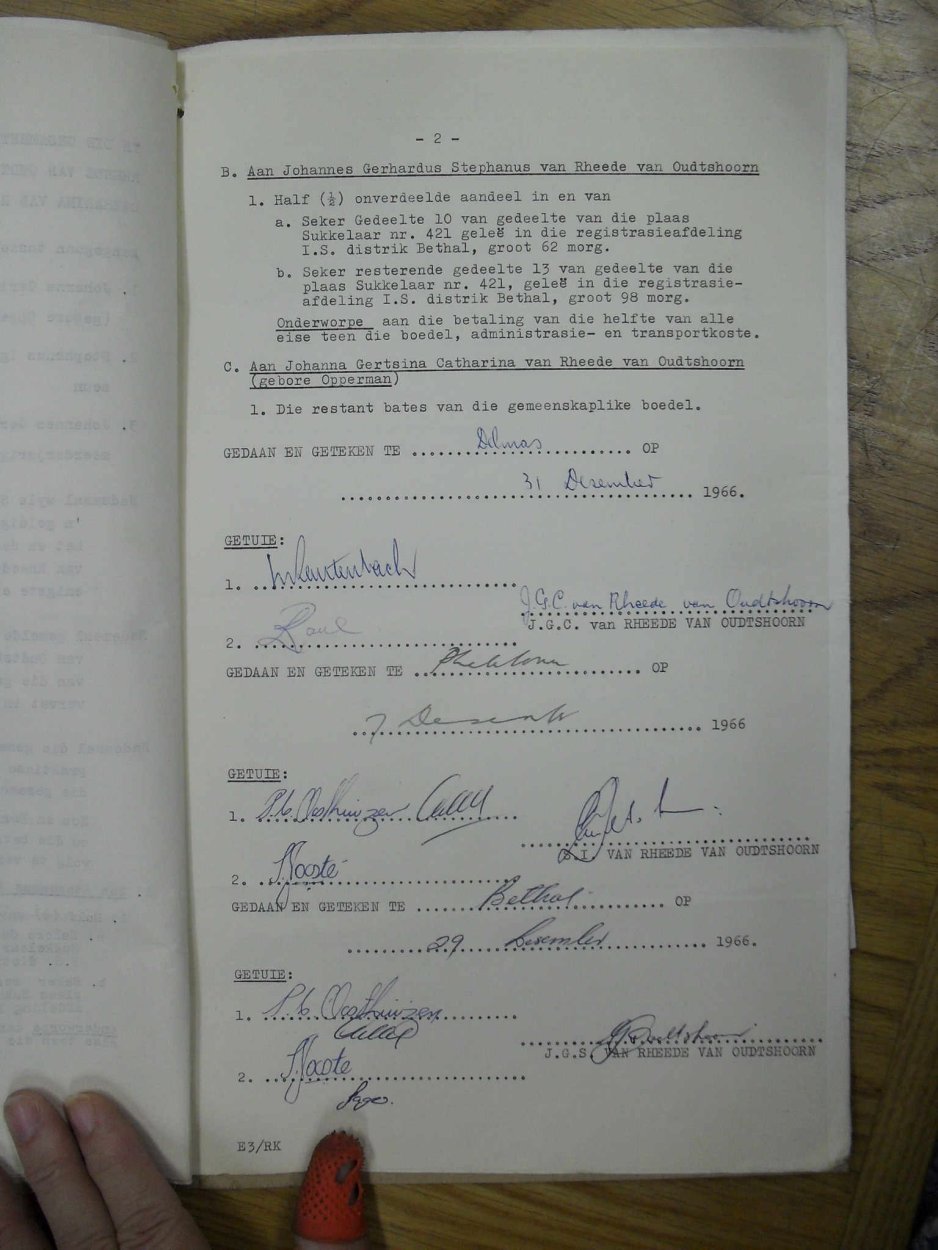 - 2 -
B. Aan Johannes Gerhardus Stephanus van Rheede van Oudtshoorn
1. Half (½) onverdeelde aandeel in en van
a. Seker Gedeelte 10 van gedeelte van die plaas
Sukkelaar nr. 421 geleë in die registrasieafdeling
I.S. distrik Bethal, groot 62 morg.
b. Seker resterende gedeelte 13 van gedeelte van die
plaas Sukkelaar nr. 421, geleë in die registrasie-
afdeling I.S. distrik Bethal, groot 98 morg.
Onderworpe aan die betaling van die helfte van alle
eise teen die boedel, administrasie- en transportkoste.
C. Aan Johanna Gertsina Catharina van Rheede van Oudtshoorn
(gebore Opperman)
1. Die restant bates van die gemeenskaplike boedel.
GEDAAN EN GETEKEN TE Delmas OP
31 Desember 1966.
GETUIE:
1.
J.G.C. van Rheede van Oudtshoorn
J.G.C. van RHEEDE VAN OUDTSHOORN
2.
GEDAAN EN GETEKEN TE OP
7 Desember 1966
GETUIE:
1. Oosthuizen
S.I. VAN RHEEDE VAN OUDTSHOORN
2. Jooste
GEDAAN EN GETEKEN TE Bethal OP
29 Desember 1966.
GETUIE:
1. Oosthuizen
J.G.S. VAN RHEEDE VAN OUDTSHOORN
2. Jooste
E3/RK